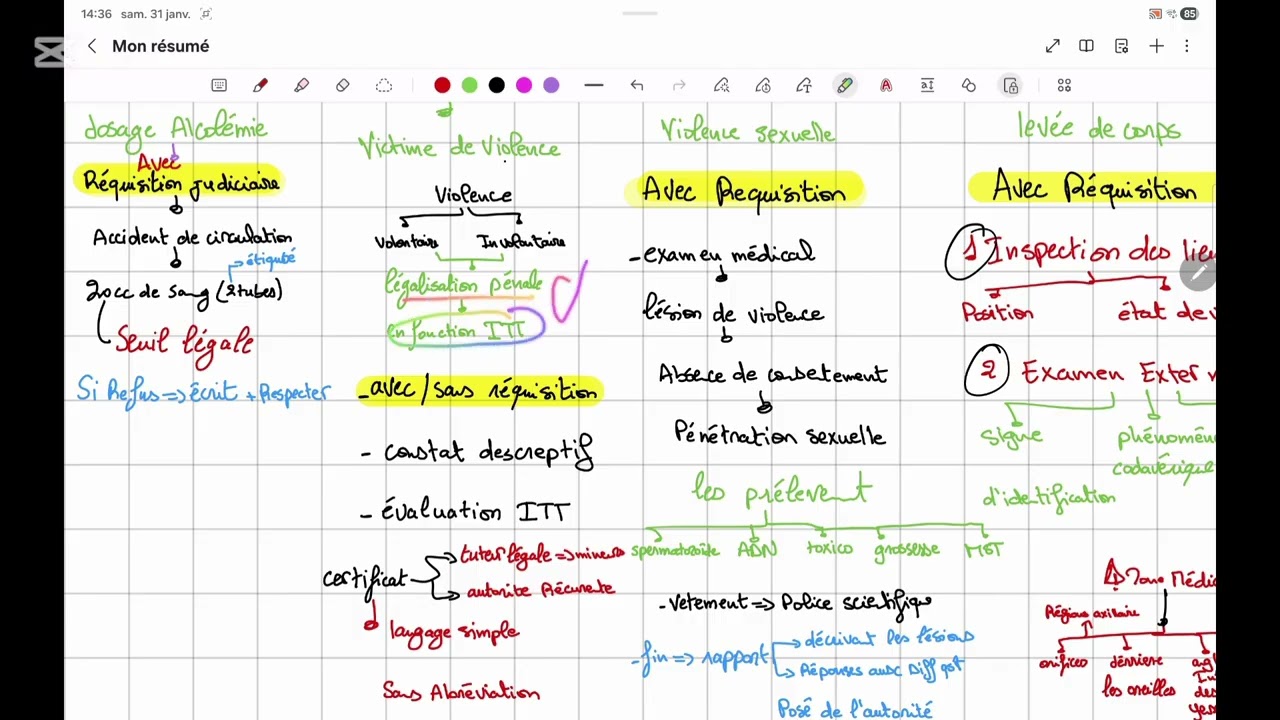 14:36 sam. 31 janv.
85
Mon résumé
dosage Alcolémie
Avec
Réquisition judiciaire
Accident de circulation
étiqueté
20cc de sang (2 tubes)
Seuil légale
Si Refus => écrit + Respecter
Victime de Violence
Violence
Volontaire Involontaire
légalisation pénale
en fonction ITT
- avec / sans réquisition
- constat descreptif
- évaluation ITT
certificat
tuteur légale => mineurs
autorite Récurente
langage simple
Sans Abréviation
Violence sexuelle
Avec Requisition
- examen médical
lésion de violence
Absence de consetement
Pénétration sexuelle
les prélevent
spermatozoïde ADN toxico grossesse MST
- Vetement => Police scientifique
- fin => rapport
décrivant les lésions
Réponses aux Diff qst
Posé de l'autorité
levée de corps
Avec Réquisition
1 Inspection des lieu
Position état de
2 Examen Exter
signe
d'identification
phénomèn
cadavérique
Médic
Régions axilaire
orifices
dérrière
les oreilles